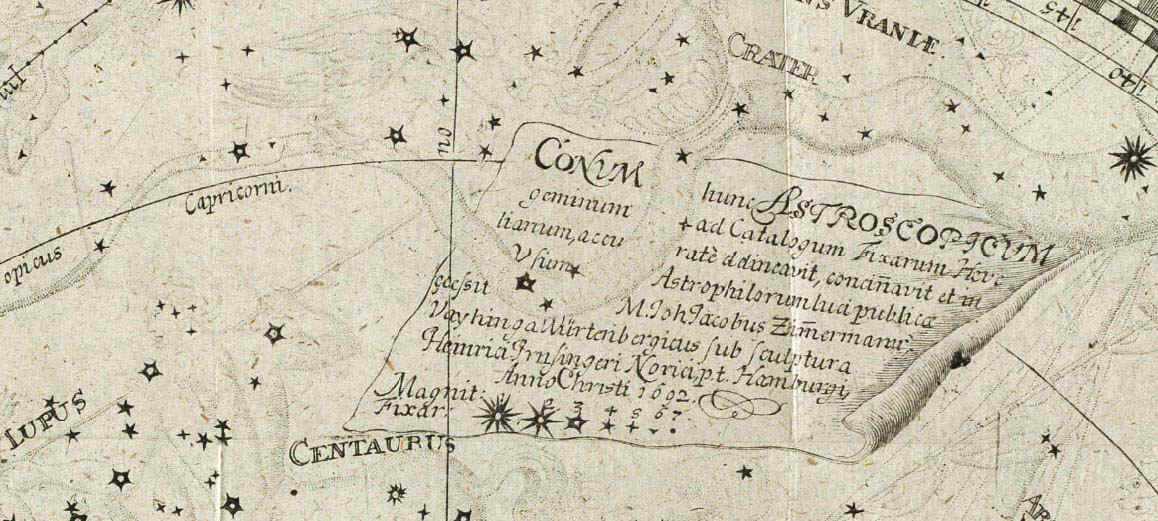 NS VRANIÆ
145
140
CRATER
no
Capricorni.
opicus
CONUM hunc ASTROSCOPICVM
geminum + ad Catalogum Fixarum Heve
lianum, accu ratè delineavit, conciñavit et in
Vsum Astrophilorum luci publicæ
secessit M. Joh Jacobus Zim̄ermanus
Vayhinga Würtenbergicus sub sculptura
Heinrici Noric. p.t. Hamburgi,
Anno Christi 1692.
Magnit: 1 2 3 4 5 6 ?
Fixar:
LUPUS
CENTAURUS